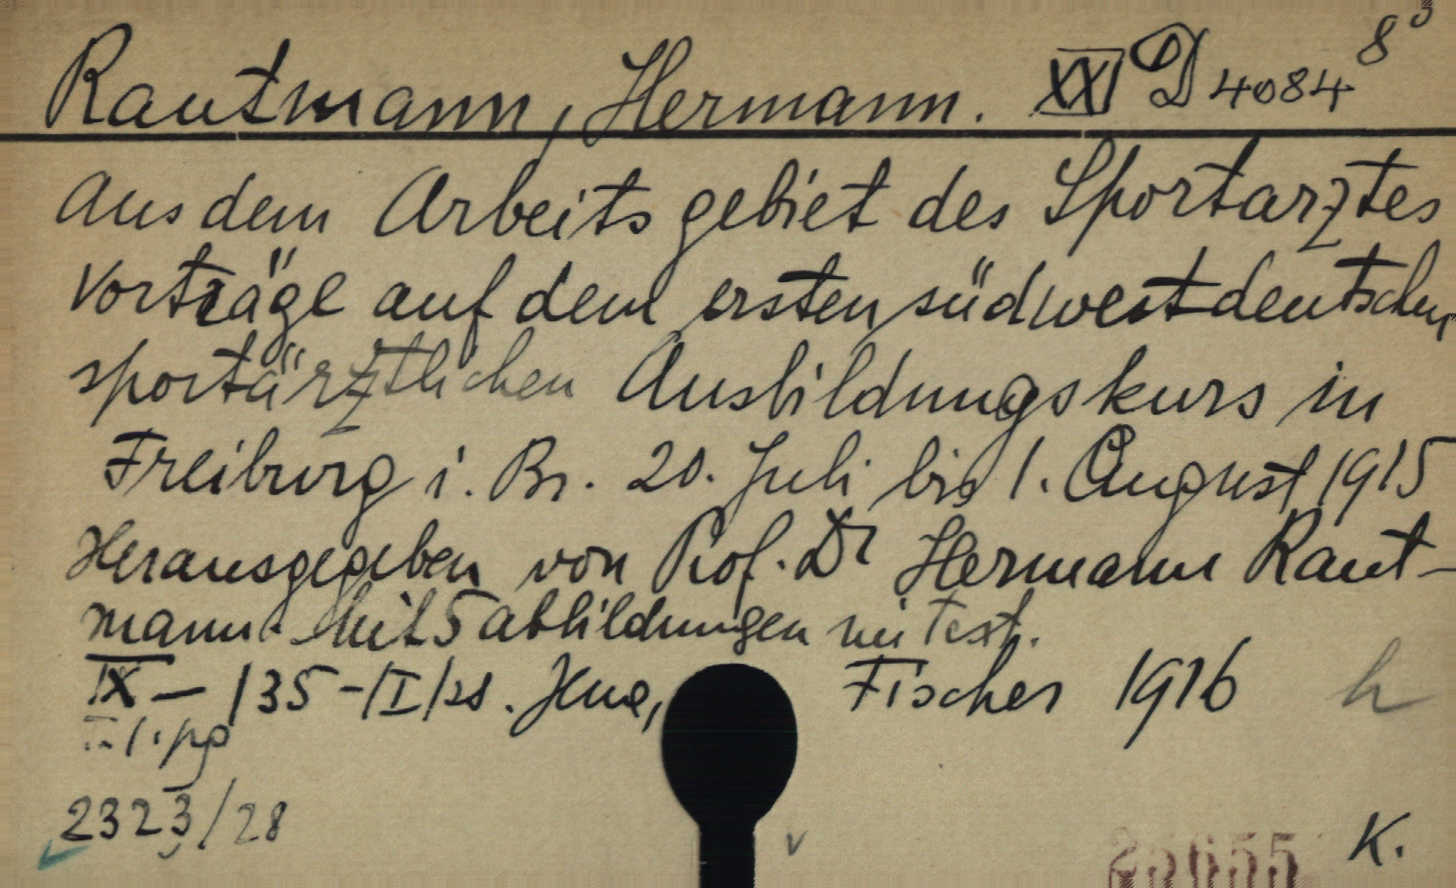 Rautmann, Hermann. XXI D 4084 8°
Aus dem Arbeitsgebiet des Sportarztes
Vorträge auf dem ersten südwestdeutschen
sportärztlichen Ausbildungskurs in
Freiburg i. Br. 20. Juli bis 1. August 1915
Herausgegeben von Prof. Dr Hermann Raut-
mann. Mit 5 Abbildungen im Text.
IX — 135 - |I| ss. Jena, Fischer 1916 h
2323/28
K.